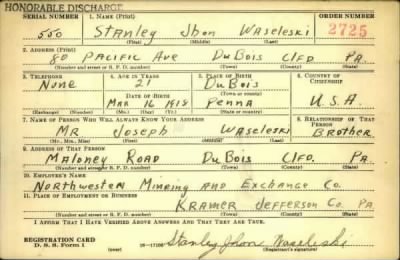 HONORABLE DISCHARGE
SERIAL NUMBER 1. NAME (Print) ORDER NUMBER
550 Stanley Jhon Waseleski 2725
(First) (Middle) (Last)
2. ADDRESS (Print)
80 PACIFIC AVE DUBOIS CLFD PA.
(Number and street or R. F. D. number) (Town) (County) (State)
3. TELEPHONE 4. AGE IN YEARS 5. PLACE OF BIRTH 6. COUNTRY OF CITIZENSHIP
None 21 DuBois
DATE OF BIRTH (Town or county)
MAR 16 1918 Penna U.S.A.
(Exchange) (Number) (Mo.) (Day) (Yr.) (State or country)
7. NAME OF PERSON WHO WILL ALWAYS KNOW YOUR ADDRESS 8. RELATIONSHIP OF THAT PERSON
MR Joseph Waseleski Brother
(Mr., Mrs., Miss) (First) (Middle) (Last)
9. ADDRESS OF THAT PERSON
MALONEY ROAD DuBois CLFD. PA
(Number and street or R. F. D. number) (Town) (County) (State)
10. EMPLOYER'S NAME
Northwestern Mining and Exchange Co.
11. PLACE OF EMPLOYMENT OR BUSINESS
KRAMER Jefferson Co PA
(Number and street or R. F. D. number) (Town) (County) (State)
I AFFIRM THAT I HAVE VERIFIED ABOVE ANSWERS AND THAT THEY ARE TRUE.
REGISTRATION CARD
D. S. S. Form 1 Stanley Jhon Waseleski
(Registrant's signature)